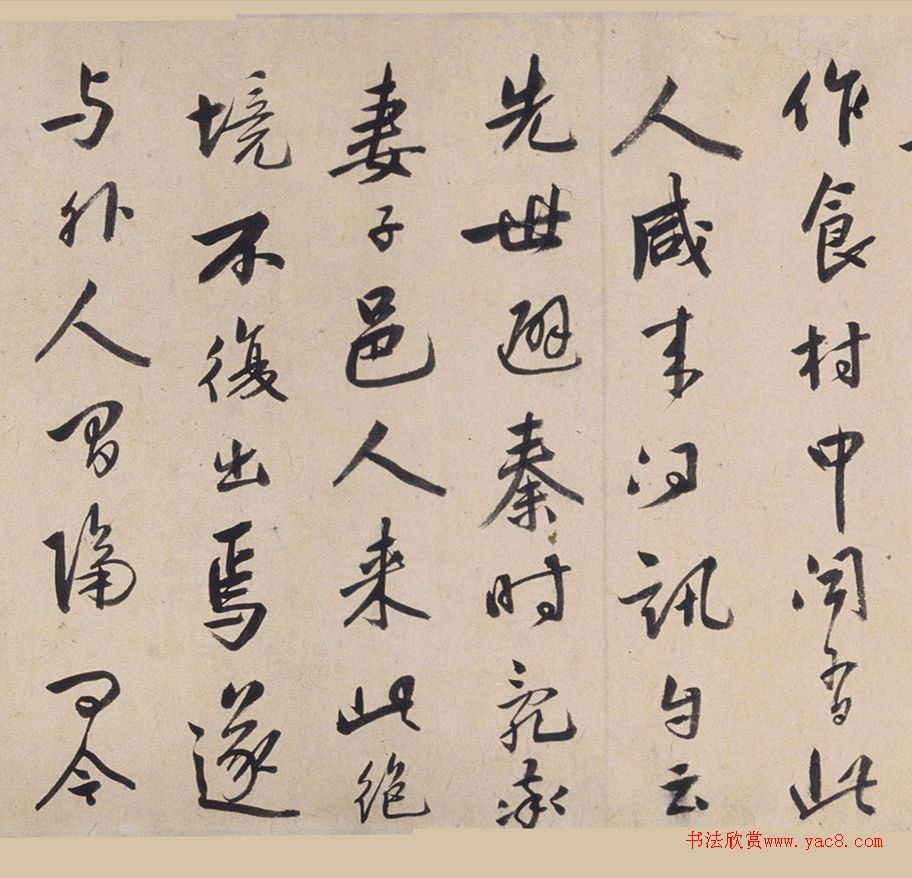 作食村中聞有此
人咸来問訊自云
先世避秦时乱率
妻子邑人来此絶
境不復出焉遂
与外人間隔問今
书法欣赏www.yac8.com